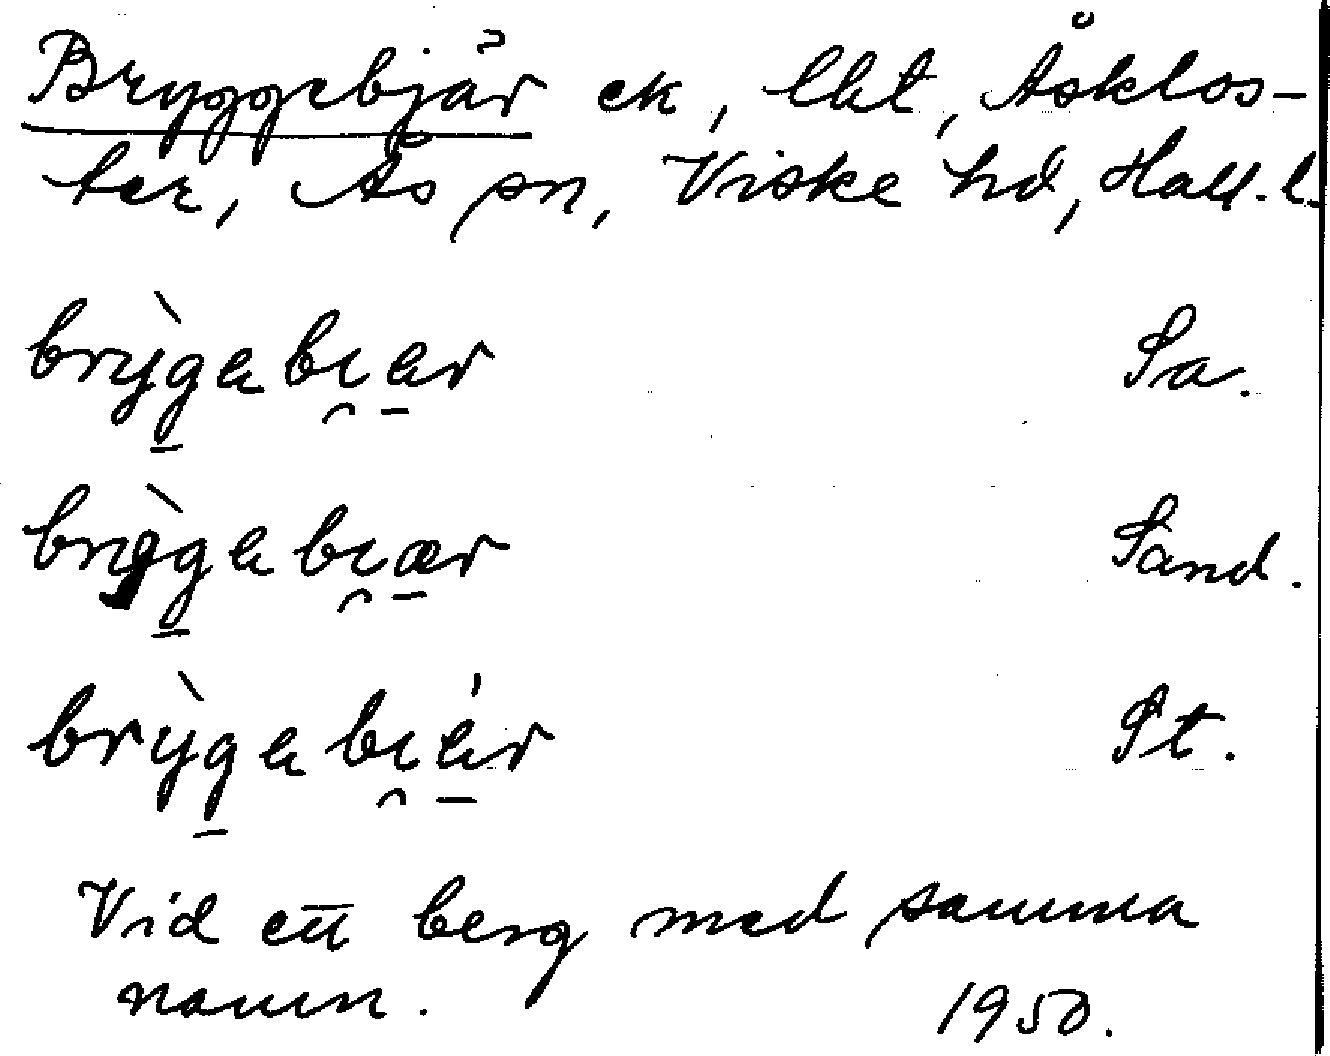 Bryggebjär ek, lht, Åsklos-
ter, Ås sn, Viske hd, Hall. l.
brỳgabi̯ar Sa.
brỳgabi̯ær Sand.
brỳgabi̯ár St.
Vid ett berg med samma
namn. 1950.